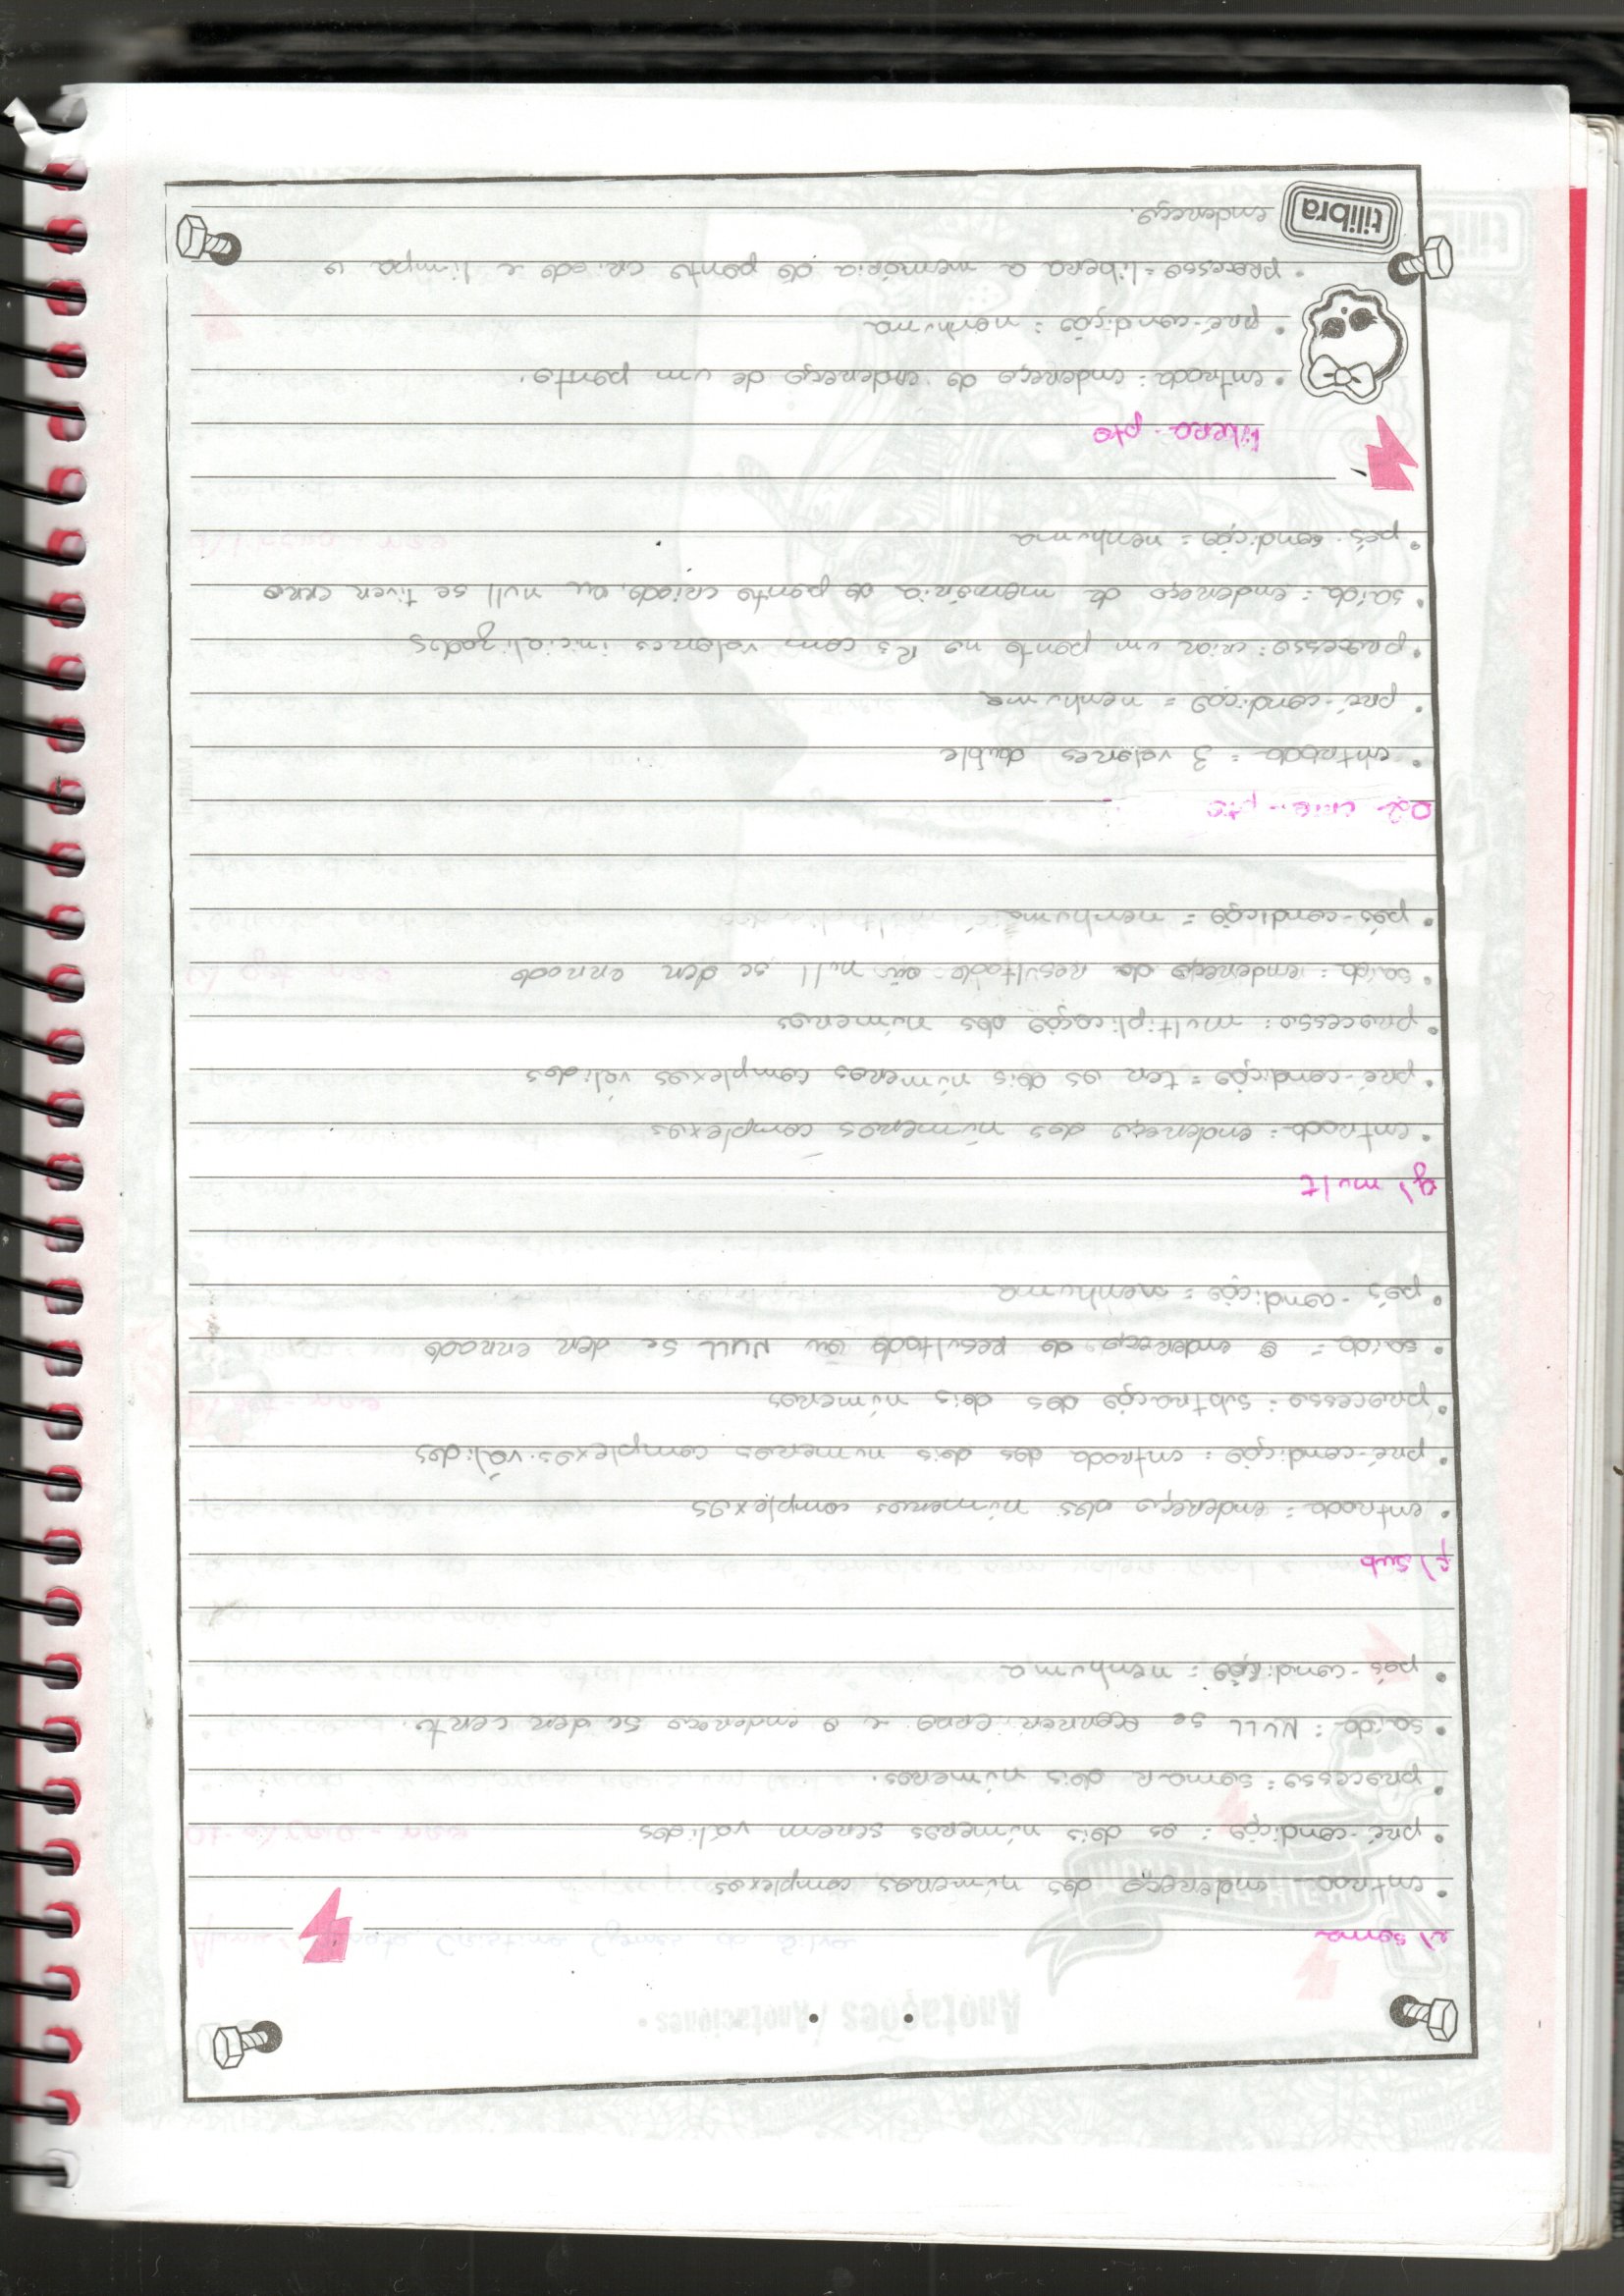 e) soma
• entrada endereço dos números complexos
• pré-condição: os dois números serem validos
• processo: somar dois números.
• saída: NULL se ocorrer erro e o endereço se der certo.
• pós-condição: nenhuma
f) sub
• entrada: endereço dos números complexos
• pré-condição: entrada dos dois números complexos válidos
• processo: subtração dos dois números
• saída: o endereço do resultado ou NULL se der errado
• pós-condição: nenhuma
g) mult
• entrada: endereço dos números complexos
• pré-condição = ter os dois números complexos válidos
• processo: multiplicação dos números
• saída: endereço do resultado ou null se der errado
• pós-condição = nenhuma
02- cria-pto
• entrada = 3 valores double
• pré-condição = nenhuma
• processo: criar um ponto no R3 com valores inicializados
• saída: endereço de memória do ponto criado, ou null se tiver erro
• pós-condição = nenhuma
libera-pto
• entrada: endereço do endereço de um ponto.
• pré-condição: nenhuma
• processo = libera a memória do ponto criado e limpa o
endereço.
tilibra